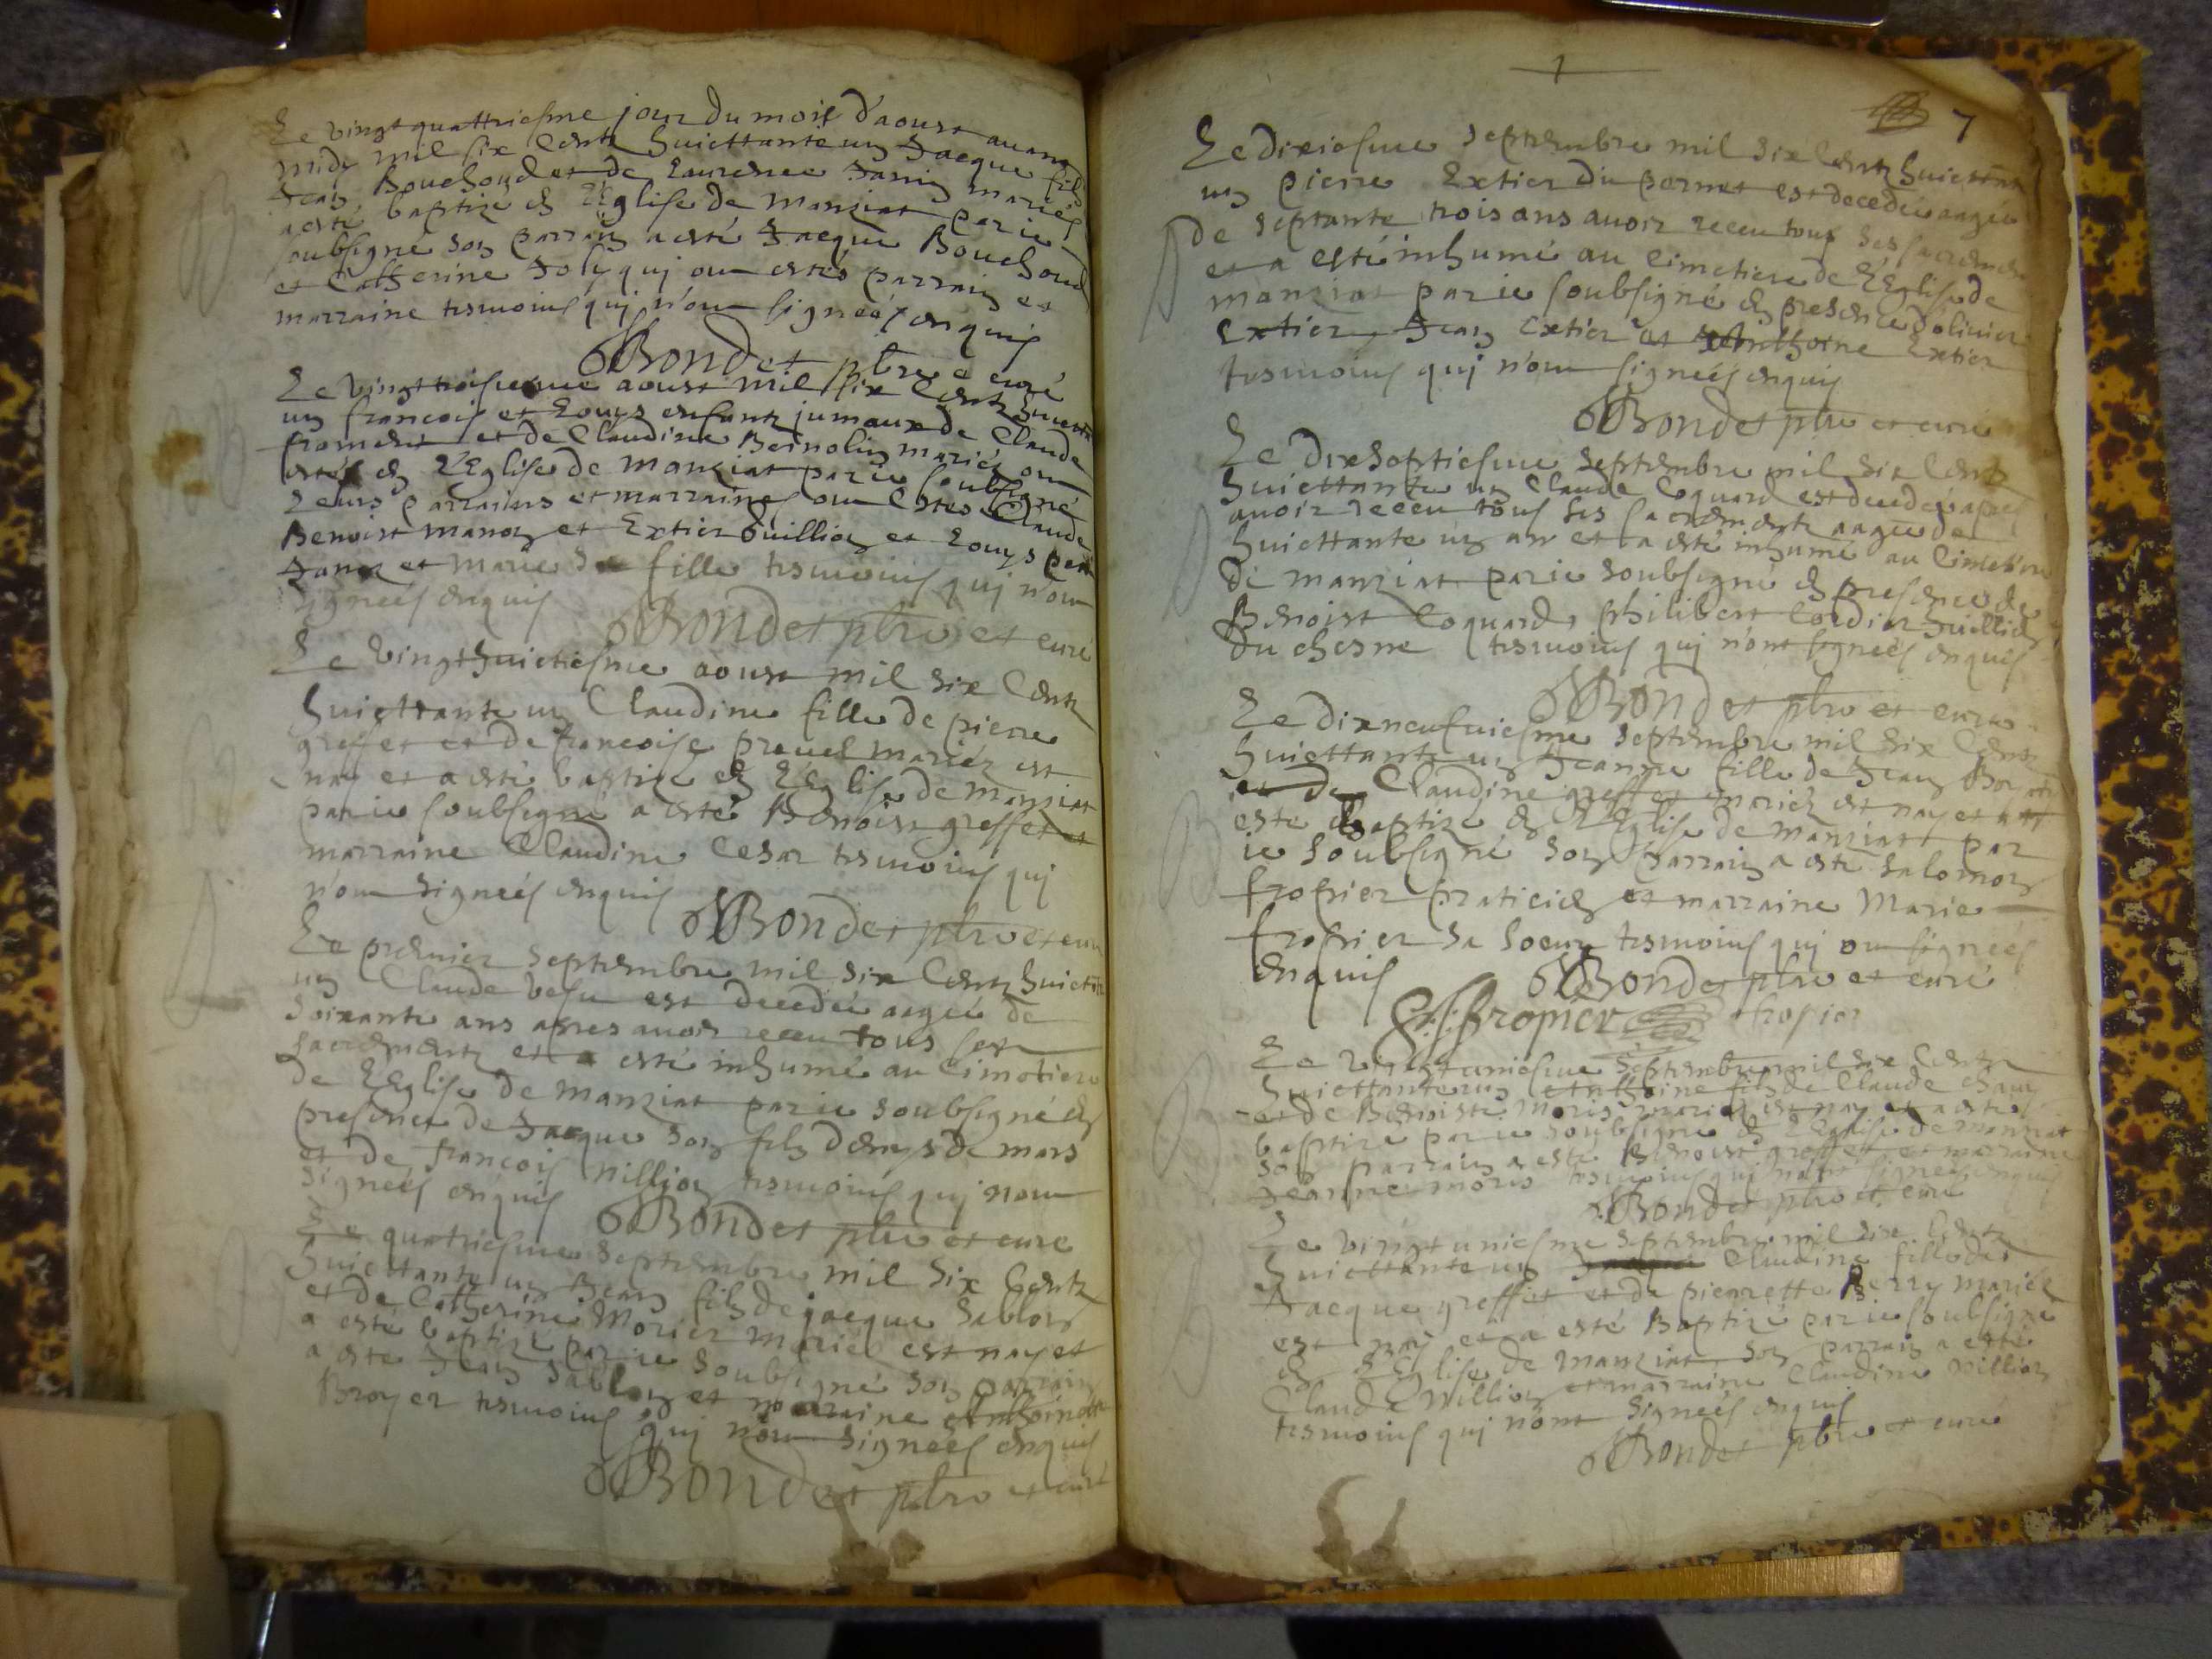 Le vingt quattriesme jour du mois d'aoust avant
midy mil six Centz huicttante un Jacque filz
Jean Bouchoud et de Laurence Janin mariés
a esté baptizé en L'Eglise de manziat par ie
soubsigné son parrain a esté Jacque Bouchoud
et Catherine Joly quj ont estés parrain et
marraine tesmoins quj n'ont signéés enquis
Bondet pbre e curé
Le vingt troisiesme aoust mil six Centz huictte
un francois et Louys enfantz jumaux de Claude
froment et de Claudine Bernolin mariéz ont
estés en L'Eglise de manziat par ie soubsigné
Leurs parrains et marraines ont Estes Claude
Benoist manon et Extier Guillion et Louys
et marie sa fille tesmoins quj n'ont
signéés enquis Bondet pbre et curé
Le vingt huictiesme aoust mil six Centz
huicttante un Claudine fille de pierre
greffet et de francoise preuel mariéz est
nay et a esté baptizé en L'Eglise de manziat
par ie soubsigné a esté Benoist greffet et
marraine Claudine Cesar tesmoins quj
n'ont signéés enquis
Bondet pbre et curé
Le premier septembre mil six Centz huictte
un Claude vesu est decedéé aagéé de
soixante ans apres avoir receu tous ses
sacrementz et a esté inhumé au Cimetiere
de L'Eglise de manziat par ie soubsigné en
presence de Jacque son filz denys de mars
et de francois Nillion tesmoins quj nont
signéés enquis Bondet pbre et curé
Le quatriesme septembre mil six Centz
huicttante un Jean filz de jacque Sablon
et de Catherine Morier mariés est nay et
a esté baptizé par ie soubsigné son parrain
a esté Jean Sablon et marraine Anthoinette
Broyer tesmoins quj n'ont signéés enquis
Bondet pbre et curé
7
Le dixiesme septembre mil six Centz huicttante
un pierre Extier du pornet est decedéé aagéé
de septante trois ans avoir receu tous ses sacrementz
et a esté inhumé au Cimetiere de L'Eglise de
manziat par ie soubsigné en presence d'olivier
Extier, Jean Extier et Anthoine Extier
tesmoins quj n'ont signéés enquis
Bondet pbre et curé
Le dixseptiesme septembre mil six Centz
huicttante un Claude Coquard est decedéé apres
avoir receu tous ses sacrementz aagéé de
huicttante un an et a esté inhumé au Cimetiere
de manziat par ie soubsigné en presence de
Benoist Coquard, philibert Cordier
du chesne tesmoins quj n'ont signéés enquis
Bondet pbre et curé
Le dixneufuiesme septembre mil six Centz
huicttante un Jeanne fille de Jean
et de Claudine greffet mariéz est nay et a
este Baptizé en L'Eglise de manziatt par
ie soubsigné son parrain a esté Salomon
fropier praticien et marraine Marie
fropier sa soeur tesmoins quj ont signéés
enquis Bondet pbre et curé
S. fropier fropier
Le vingt uniesme septembre mil six Centz
huicttante un Anthoine filz de Claude
et de Benoiste moris mariéz est nay et a esté
baptizé par ie soubsigné en L'Eglise de manziat
son parrain a esté Benoist greffet et marraine
Jeanne moris tesmoins quj nont signéés enquis
Bondet pbre et curé
Le vingt uniesme septembre mil six Centz
huicttante un Claudine fille de
Jacque greffet et de pierrette Perry mariéz
est nay et a esté Baptizé par ie soubsigné
en L'Eglise de manziat, son parrain a esté
Claude Nillion et marraine Claudine Nillion
tesmoins quj nónt signéés enquis
Bondet pbre et curé